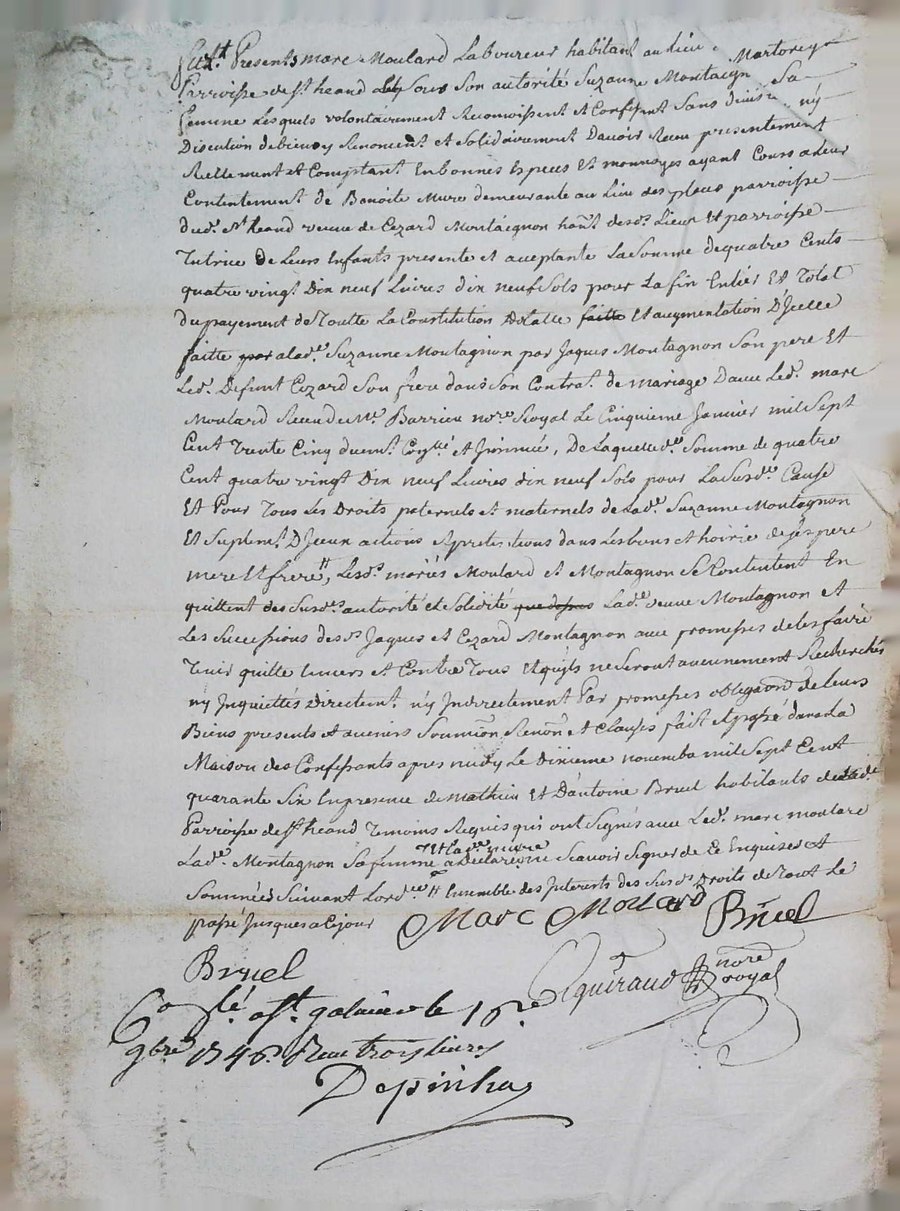 furt Presents marc Moulard Laboureur habitant au lieu Martorey
Parroisse de st heand Et Sous Son autorité Suzanne Montaign Sa
femme Lesquels volontairement Reconnoissent Et Confessent Sans divis ny
Discution de biens y Renonceant et Solidairement Davoir Receu presentement
Reellement et Comptant En bonnes Especes Et monnoyes ayant Cours a Leur
Contentement de Benoite Mure demeurante au Lieu des places parroisse
dud. st heand veuve de Cezard Montaignon hant. desd. Lieu Et parroisse
Tutrice de Leurs Enfants presente et acceptante La Somme de quatre Cents
quatre vingt Dix neuf Livres dix neuf Sols pour La fin Entier Et Total
du payement de Toutte La Constitution dotalle faitte Et augmentation D'Jcelle
faitte par a lad.e Suzanne Montagnon par Jaques Montagnon Son pere Et
Led. Defunt Cezard Son frere dans Son Contrat de mariage Avec Led. marc
Moulard Receu de Me. Barrieu nore. Royal Le Cinquieme Janvier mil Sept
Cent Trente Cinq duemt. Conllé Et Jnsinué, De Laquelle de. Somme de quatre
Cent quatre vingt Dix neuf Livres dix neuf Sols pour La Susde. Cause
Et Pour Tous Ses Droits paternels et maternels de Lade. Suzanne Montagnon
Et Suplemt. D'Jceux actions Et pretentions dans Les biens Et hoirie de Ses pere
mere Et frere #, Lesds. mariés Moulard et Montagnon Se Contentent En
quittent des Susds. autorité et Solidité que dessus Lade. veuve Montagnon et
Les Successions desds. Jaques et Cezard Montagnon avec promesses de Les faire
Tenir quitte Envers Et Contre Tous Et quils ne Seront aucunement Recherchés
ny Jnquiettés Directemt. ny Jndirectement Par promesses obligaon. de Leurs
Biens presents et avenirs Soumion. Renon. et Clauses fait Et passé dans La
Maison des Confessants apres midy Le Dixieme novembre mil Sept Cent
quarante Six En presence de Mathieu Et D'antoine Bruel habitants de Lade.
Parroisse de st heand Temoins Requis qui ont Signés avec Led. marc moulard
Lade. Montagnon Sa femme Et Lade. mure a Declaré ne Scavoir Signer de Ce Enquises Et
Sommées Suivant Lordce. # Ensemble des Jnterets des Susds Droits de Tout Le
passé Jusques a Ce jour Marc Moulard Bruel
Bruel Peguiraud nore royal
Conllé a st galmier le 16e
9bre 1746 Reçu trois livres
Depinhac